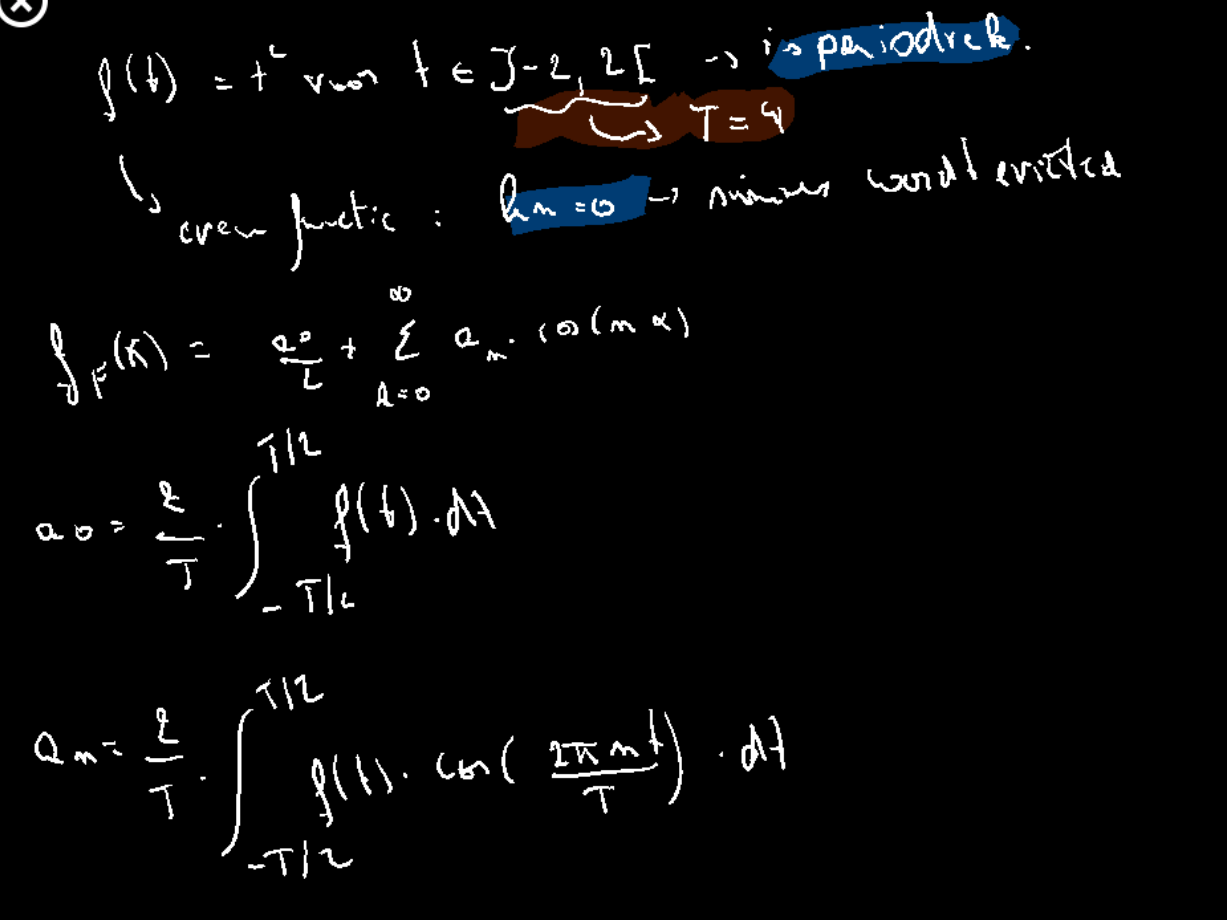 f(t) = t² voor t ∈ ]-2, 2[ → is periodiek.
↳ T = 4
↳ even functie : bn = 0 → sinus wordt
f_F(x) = a0/2 + ∞ Σ n=0 an · cos(n x)
a0 = 2/T · ∫ T/2 -T/2 f(t) · dt
an = 2/T · ∫ T/2 -T/2 f(t) · cos( 2πnt/T ) · dt